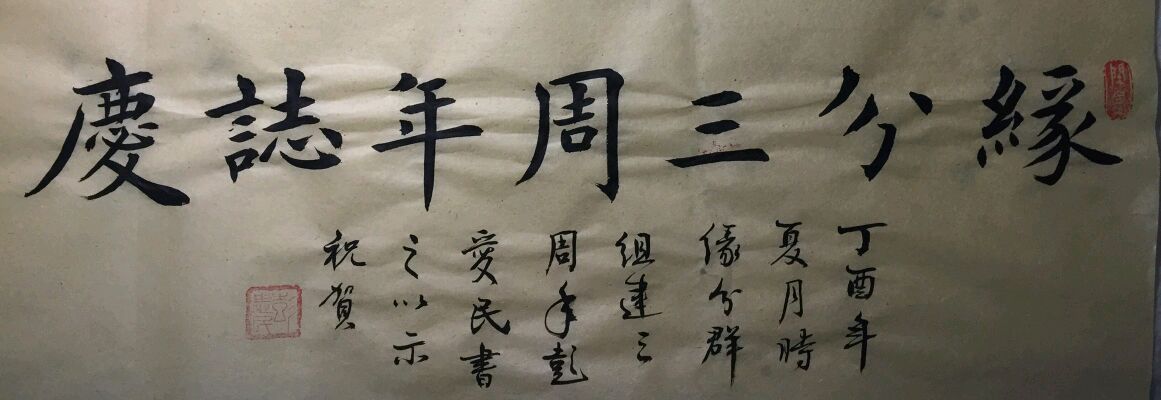 緣分三周年誌慶
丁酉年
夏月時
緣分群
組建三
周年彭
愛民書
之以示
祝賀